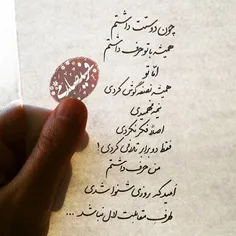 چون دوستت داشتم
همیشه با تو حرف داشتم
اما تو
همیشه نصفه گوش کردی
نمیفهمیدی
اصلا فکر نکردی
فقط دو برابر تلافی کردی!
من حرف داشتم
امید که روزی شنوا شدی
طرف مقابلت لال نباشد ...